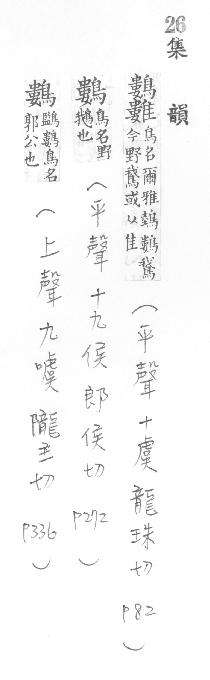 26集韻
鷜䨇鳥名爾雅鵱鷜鵞今野鵞或从隹(平聲十虞龍珠切P82)
鷜鳥名野鵝也(平聲十九侯郎侯切P272)
鷜鸓鷜鳥名郭公也(上聲九噳隴主切P336)